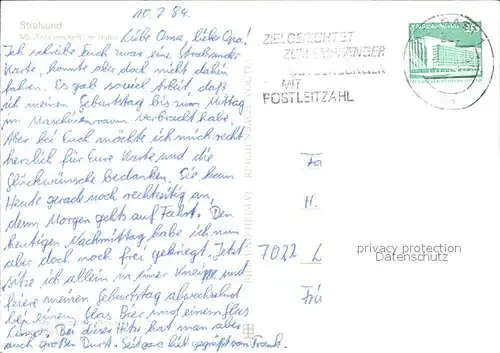 10.7.84.
Stralsund
MS „Fritz im Hafen
Liebe Oma, lieber Opa!
Ich schreibe Euch zwar eine Stralsunder
Karte, konnte aber doch nicht dahin
fahren. Es gab soviel Arbeit, daß
ich meinen Geburtstag bis zum Mittag
im Maschinenraum verbracht habe.
Aber bei Euch möchte ich mich recht
herzlich für Eure Karte und die
Glückwünsche bedanken. Sie kam
Heute gerade noch rechtzeitig an,
denn Morgen gehts auf Fahrt. Den
heutigen Nachmittag habe ich nun
aber doch noch frei gekriegt. Jetzt
sitze ich allein in einer Kneippe und
feiere meinen Geburtstag abwechselnd
bei einem Glas Bier und einem Glas
Bei dieser Hitze hat man aber
auch großen Durst. Seid ganz lieb gegrüßt von Frank.
ZIELGERICHTET
ZUM EMPFÄNGER
MIT
POSTLEITZAHL
10
DDR
Fa
H.
7022 L
Frie
privacy protection
Datenschutz